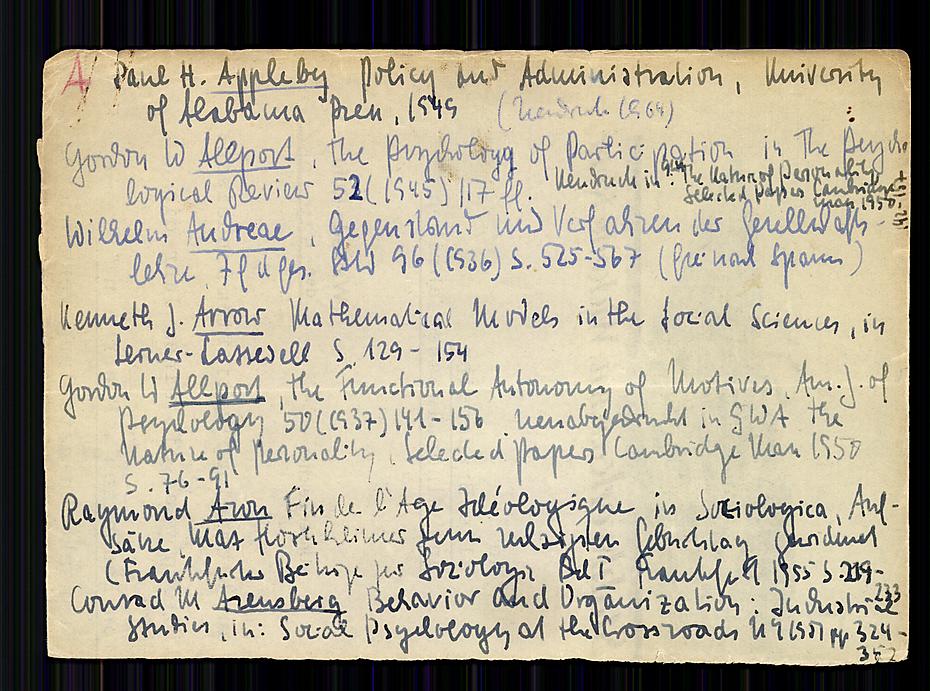 A Paul H. Appleby Policy and Administration, University
of Alabama Press, 1949 (Neudruck 1964)
Gordon W Allport, the Psychology of Participation in The Psycho-
logical Review 52 (1945) 117 ff. Neudruck in: GWA The Nature of Personality
Selected papers Cambridge
Man 1950,
Wilhelm Andreae, Gegenstand und Verfahren der Gesellschafts-
lehre, Zf d ges. StW 96 (1936) S. 525-567 (Spann)
Kenneth J. Arrow Mathematical Models in the Social Sciences, in
Lerner-Lasswell S. 129 - 154
Gordon W Allport, the Functional Autonomy of Motives, Am. J. of
Psychology 50 (1937) 141 - 156 neuabgedruckt in GWA The
Nature of Personality, Selected papers Cambridge Man 1950
S. 76-91
Raymond Aron Fin de l'Age Idéologique in Sociologica, Auf-
sätze, Max Horkheimer zum sechzigsten Geburtstag gewidmet
(Frankfurter Beiträge zur Soziologie Bd I Frankfurt 1955 S. 219-
233
Conrad M Arensberg Behavior and Organization: Industrial
Studies, in: Social Psychology at the Crossroads NY 1951 pp 324-
352